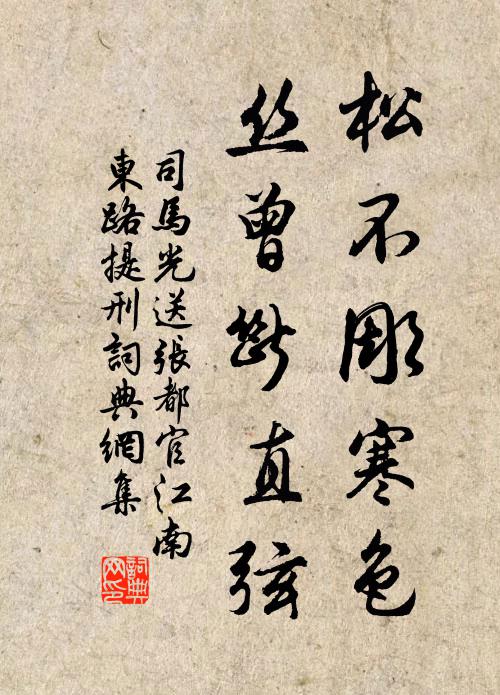 松不彫寒色
丝曾断直弦
司馬光送張都官江南
東路提刑詞典網集
詞典
网印